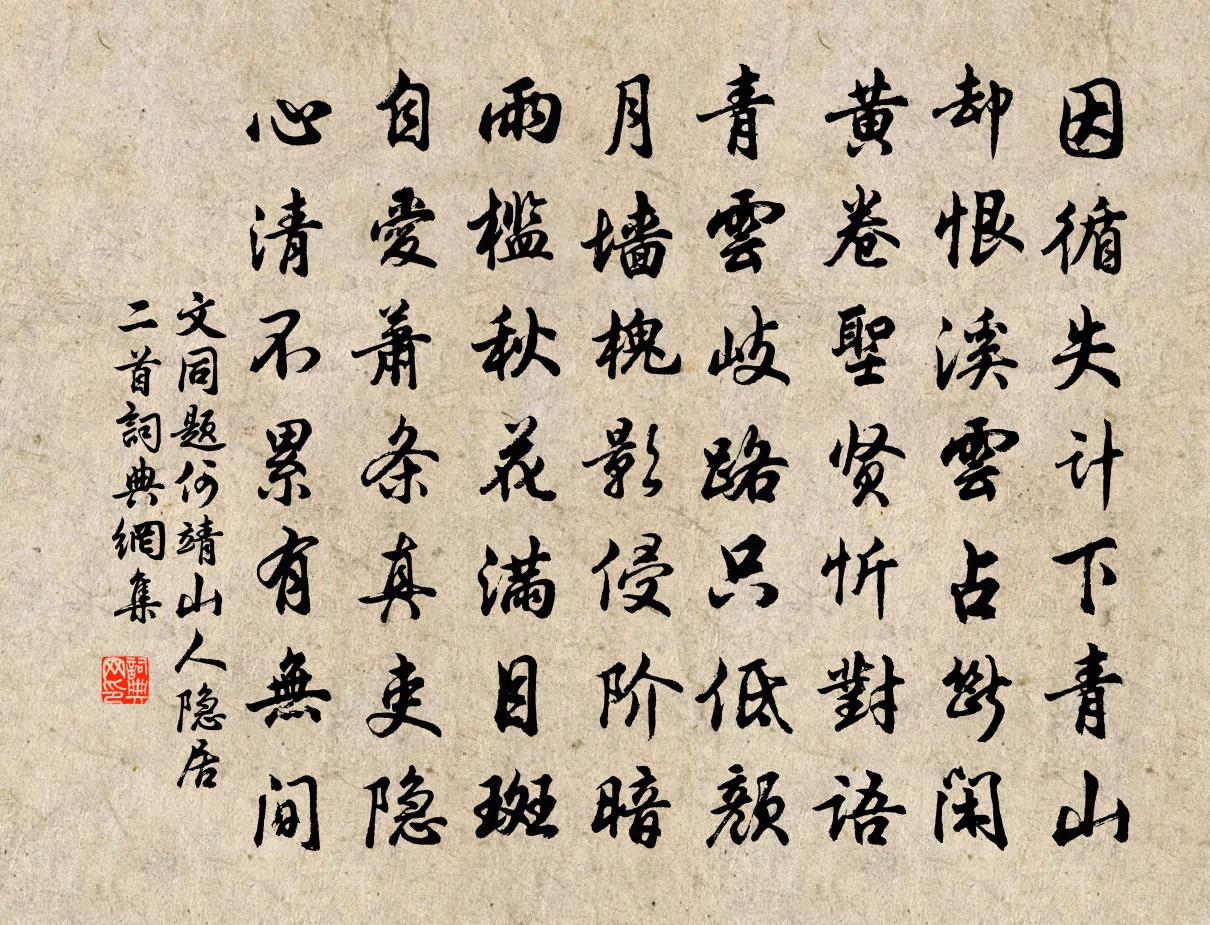 因循失计下青山
却恨溪雲占断闲
黄卷聖贤忻對语
青雲岐路只低颜
月墙槐影侵阶暗
雨槛秋花满目斑
自愛萧条真吏隐
心清不累有無间
文同题何靖山人隐居
二首詞典網集
詞典网印